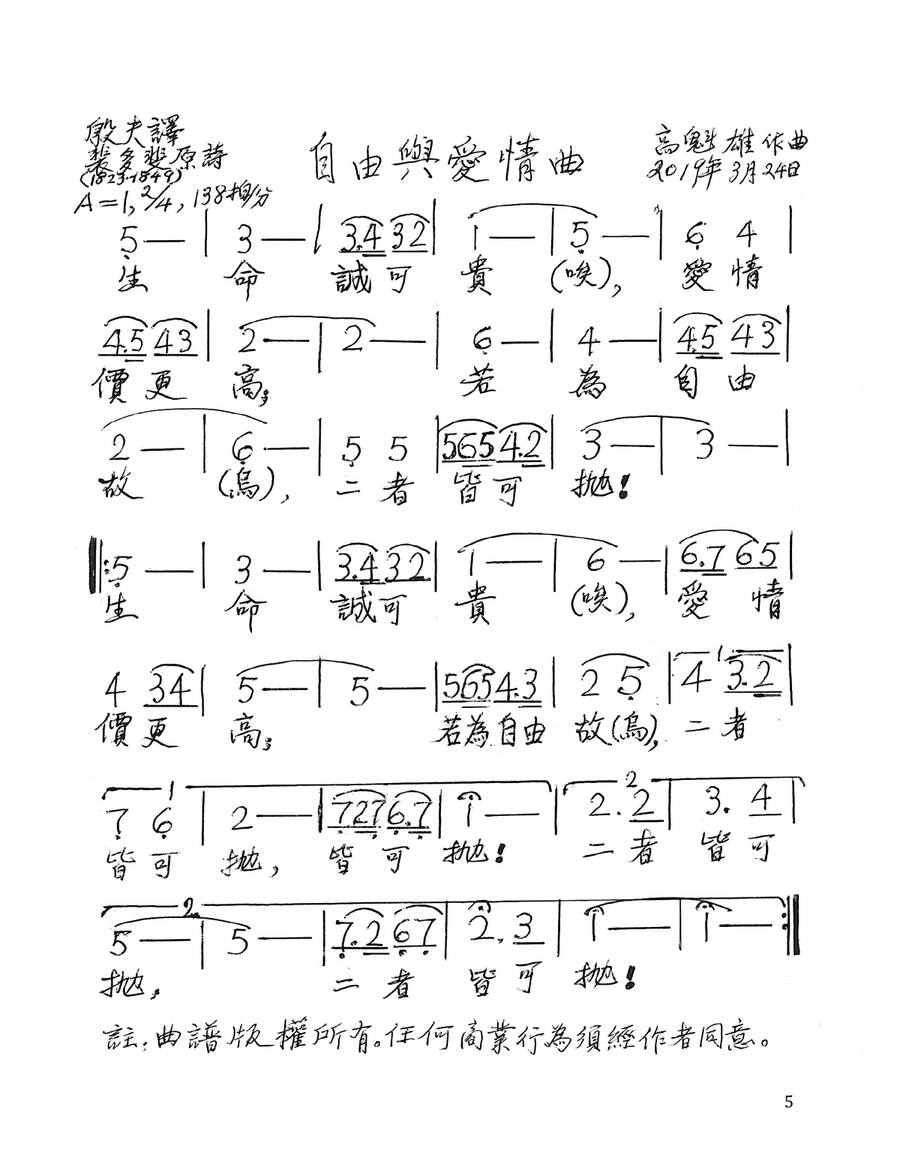 殷夫譯
裴多斐原詩
(1823-1849)
A=1, 2/4, 138拍/分
自由與愛情曲
高魁雄作曲
2019年3月24日
5 — | 3 — | 3.4 32 | 1 — | 5 — | 6 4 |
生 命 誠可 貴 (唉), 愛 情
4.5 43 | 2 — | 2 — | 6 — | 4 — | 4.5 43 |
價更 高; 若 為 自由
2 — | 6 — | 5 5 | 565 4.2 | 3 — | 3 — |
故 (烏), 二者 皆可 拋!
‖: 5 — | 3 — | 3.4 32 | 1 — | 6 — | 6.7 65 |
生 命 誠可 貴 (唉), 愛 情
4 34 | 5 — | 5 — | 565 4.3 | 2 5 | 4 3.2 |
價更 高; 若為自由 故(烏), 二者
1
7 6 | 2 — | 727 6.7 | 1 — | 2. 2 | 3. 4 |
1 2
皆可 拋, 皆可 拋! 二者 皆可
5 — | 5 — | 7.2 67 | 2. 3 | 1 — | 1 — :‖
2
拋, 二者 皆可 拋!
註:曲譜版權所有。任何商業行為須經作者同意。
5